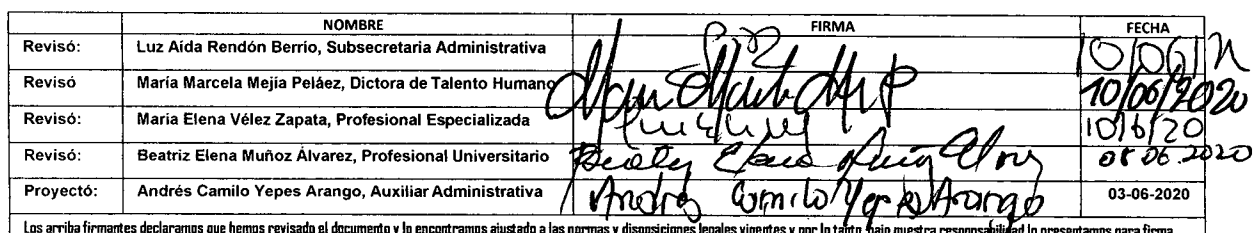 NOMBRE FIRMA FECHA
Revisó: Luz Aída Rendón Berrío, Subsecretaria Administrativa 10/06/
Revisó María Marcela Mejía Peláez, Dictora de Talento Humano 10/06/2020
Revisó: María Elena Vélez Zapata, Profesional Especializada 10/6/20
Revisó: Beatriz Elena Muñoz Álvarez, Profesional Universitario Beatriz Elena Muñoz 08 06.2020
Proyectó: Andrés Camilo Yepes Arango, Auxiliar Administrativa Andrés Camilo Yepes Arango 03-06-2020
Los arriba firmantes declaramos que hemos revisado el documento y lo encontramos ajustado a las normas y disposiciones legales vigentes y por lo tanto, bajo nuestra responsabilidad lo presentamos para firma.